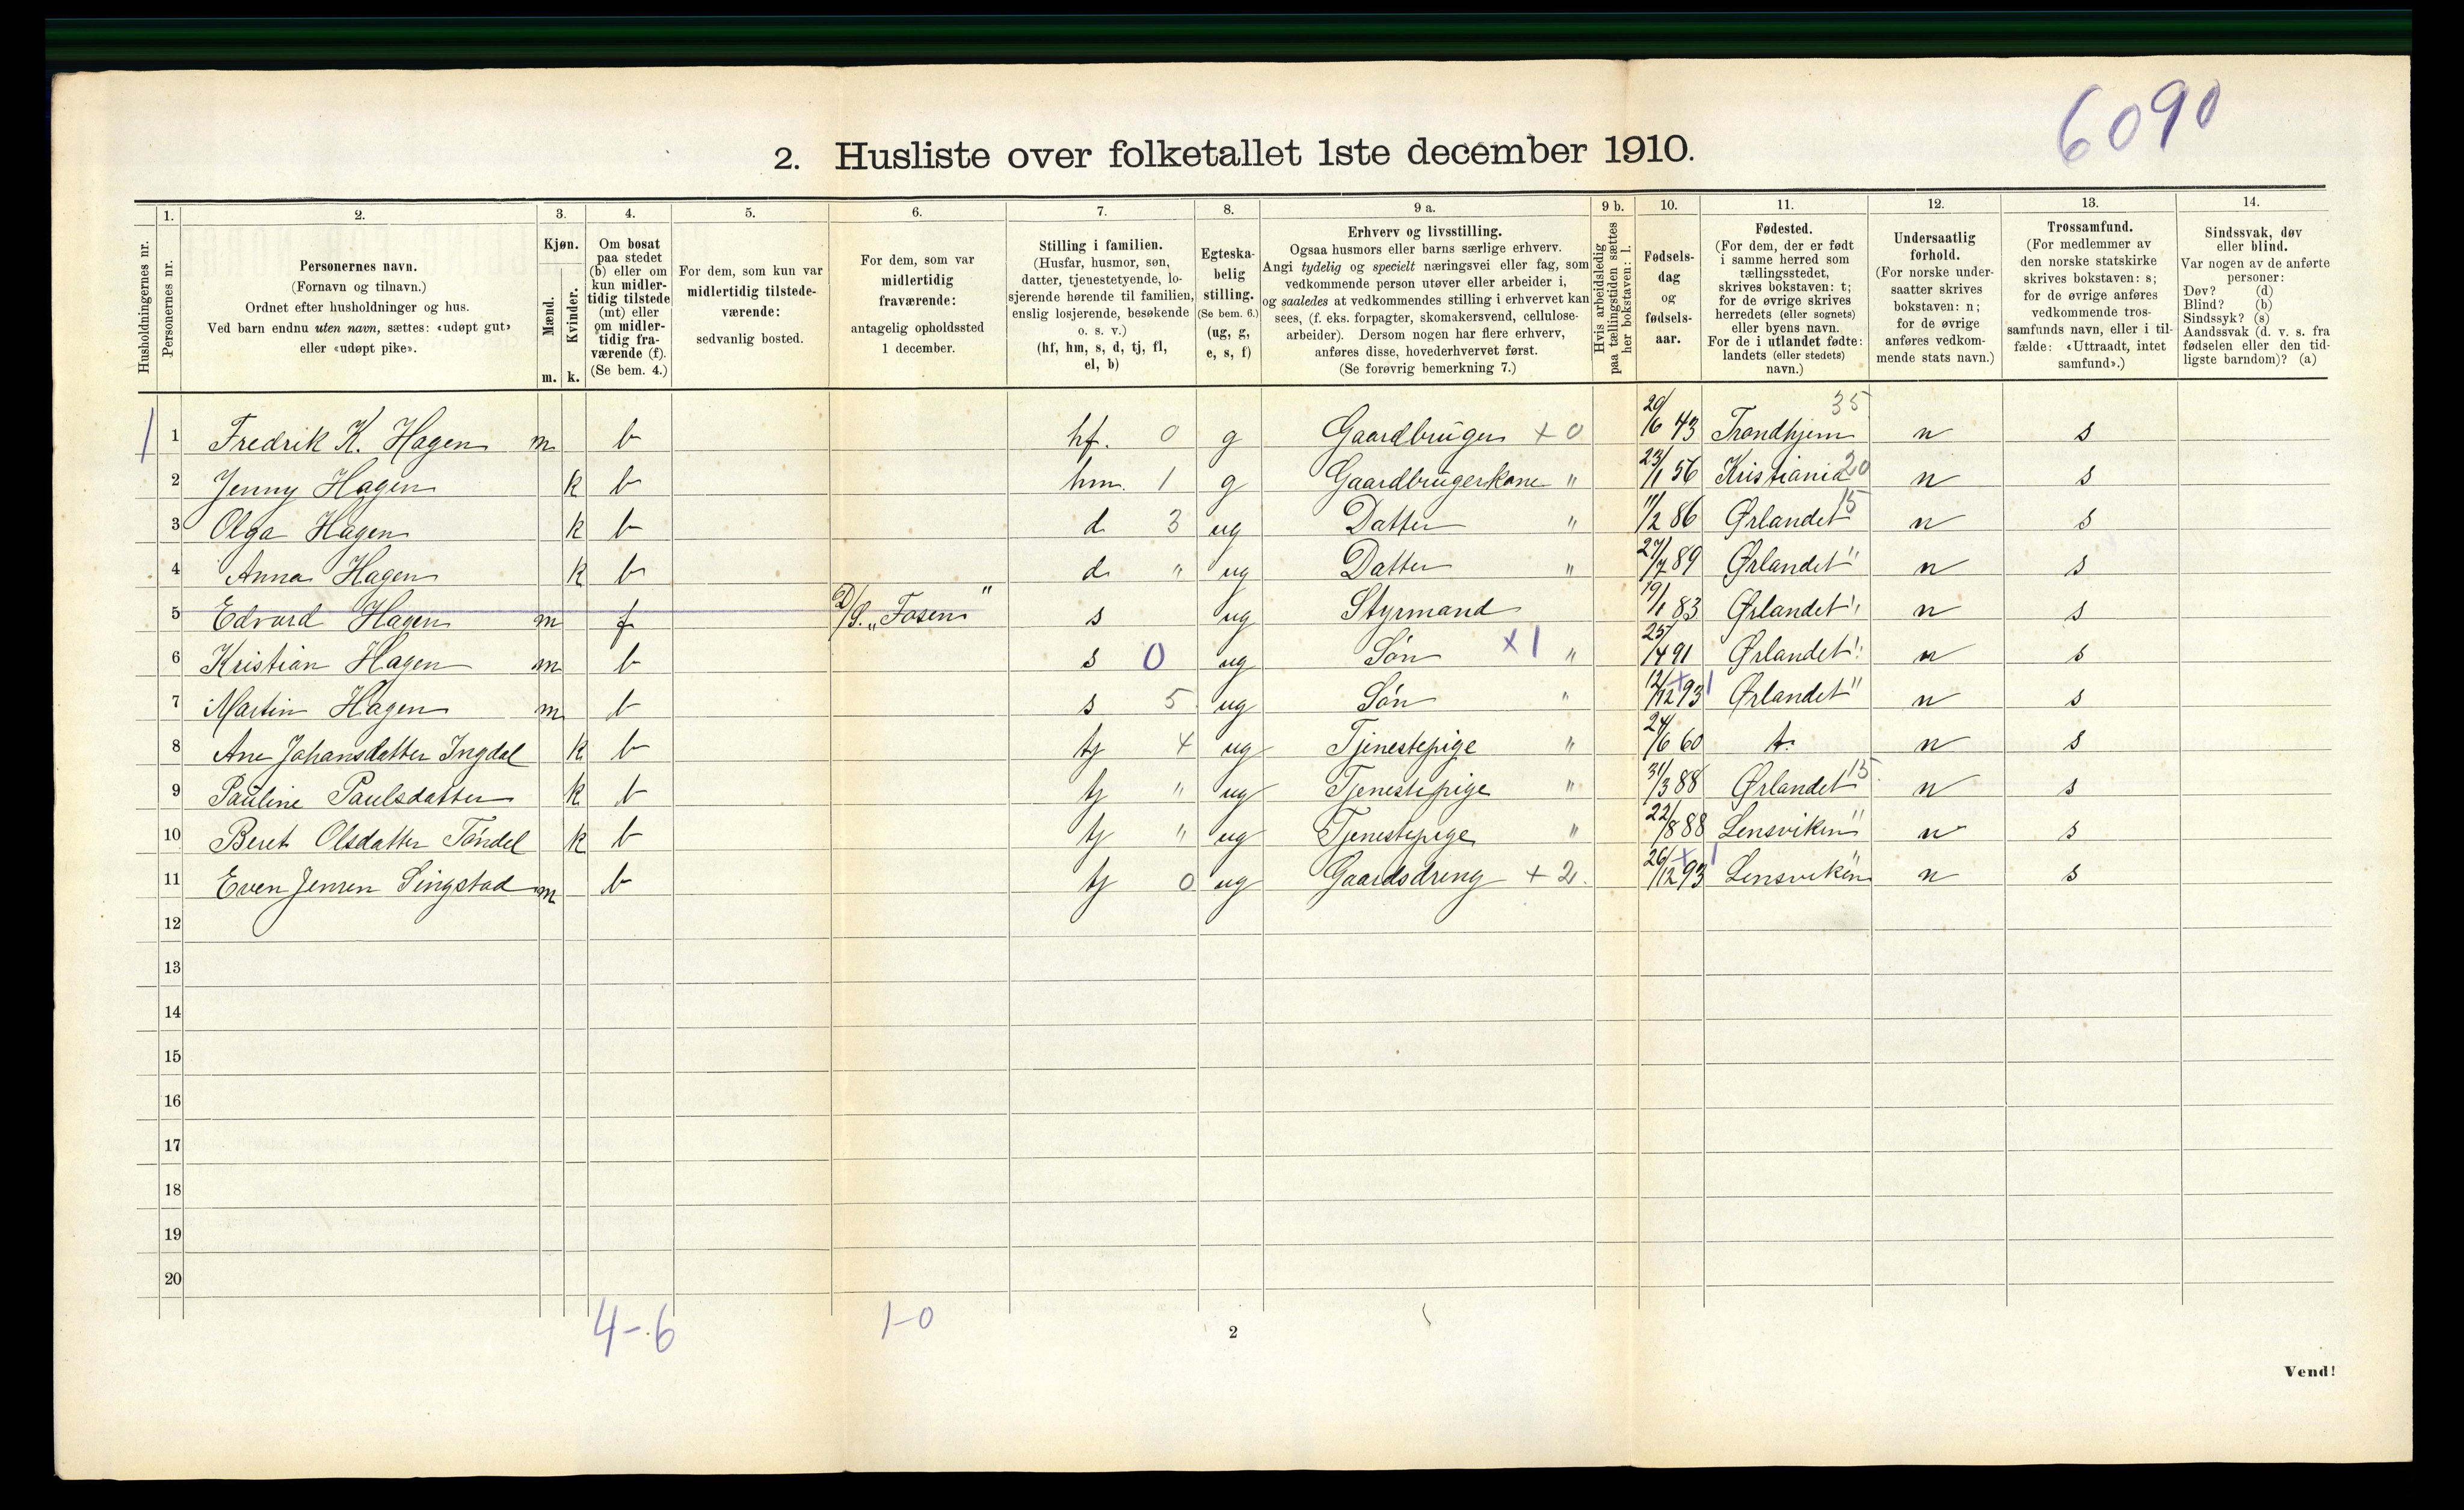 6090
2. Husliste over folketallet 1ste december 1910.
Husholdningernes nr.
1. Personernes nr.
2. Personernes navn. (Fornavn og tilnavn.) Ordnet efter husholdninger og hus. Ved barn endnu uten navn, sættes: «udøpt gut» eller «udøpt pike».
3. Kjøn. Mænd. m. Kvinder. k.
4. Om bosat paa stedet (b) eller om kun midlertidig tilstede (mt) eller om midlertidig fraværende (f). (Se bem. 4.)
5. For dem, som kun var midlertidig tilstedeværende: sedvanlig bosted.
6. For dem, som var midlertidig fraværende: antagelig opholdssted 1 december.
7. Stilling i familien. (Husfar, husmor, søn, datter, tjenestetyende, losjerende hørende til familien, enslig losjerende, besøkende o. s. v.) (hf, hm, s, d, tj, fl, el, b)
8. Egteskabelig stilling. (Se bem. 6.) (ug, g, e, s, f)
9 a. Erhverv og livsstilling. Ogsaa husmors eller barns særlige erhverv. Angi tydelig og specielt næringsvei eller fag, som vedkommende person utøver eller arbeider i, og saaledes at vedkommendes stilling i erhvervet kan sees, (f. eks. forpagter, skomakersvend, cellulosearbeider). Dersom nogen har flere erhverv, anføres disse, hovederhvervet først. (Se forøvrig bemerkning 7.)
9 b. Hvis arbeidsledig paa tællingstiden sættes her bokstaven: l.
10. Fødselsdag og fødselsaar.
11. Fødested. (For dem, der er født i samme herred som tællingsstedet, skrives bokstaven: t; for de øvrige skrives herredets (eller sognets) eller byens navn. For de i utlandet fødte: landets (eller stedets) navn.)
12. Undersaatlig forhold. (For norske undersaatter skrives bokstaven: n; for de øvrige anføres vedkommende stats navn.)
13. Trossamfund. (For medlemmer av den norske statskirke skrives bokstaven: s; for de øvrige anføres vedkommende trossamfunds navn, eller i tilfælde: «Uttraadt, intet samfund».)
14. Sindssvak, døv eller blind. Var nogen av de anførte personer: Døv? (d) Blind? (b) Sindssyk? (s) Aandssvak (d. v. s. fra fødselen eller den tidligste barndom)? (a)
1 1 Fredrik K. Hagen m b hf. 0 g Gaardbruger + 0 20/6 43 Trondhjem 35 n s
2 Jenny Hagen k b hm. 1 g Gaardbrugerkone " 23/1 56 Kristiania 20 n s
3 Olga Hagen k b d 3 ug Datter " 11/2 86 Ørlandet 15 n s
4 Anna Hagen k b d " ug Datter " 27/7 89 Ørlandet " n s
5 Edvard Hagen m f D/S. „Fosen" s ug Styrmand 19/1 83 Ørlandet " n s
6 Kristian Hagen m b s 0 ug Søn x1 " 25/4 91 Ørlandet " n s
7 Martin Hagen m b s 5 ug Søn " 12/12 93 + 1 Ørlandet " n s
8 Ane Johansdatter Ingdal k b tj 4 ug Tjenestepige " 24/6 60 t. n s
9 Pauline Paulsdatter k b tj " ug Tjenestepige " 31/3 88 Ørlandet 15 n s
10 Beret Olsdatter Tøndel k b tj " ug Tjenestepige " 22/8 88 Lensviken " n s
11 Even Jensen Singstad m b tj 0 ug Gaardsdreng + 2 26/12 93 + 1 Lensviken " n s
12
13
14
15
16
17
18
19
20
4-6 1-0
2
Vend!